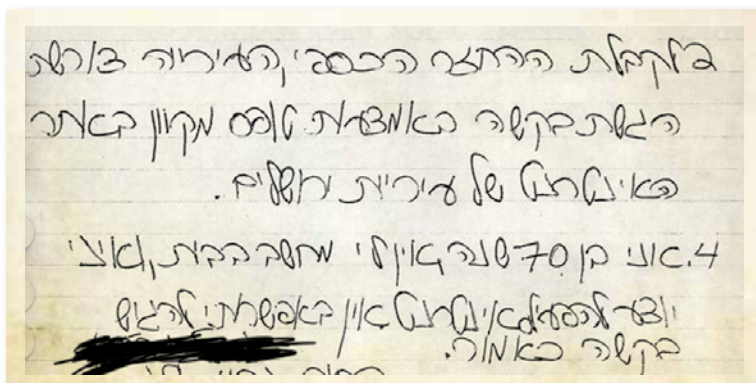 לקבלת ההחזר הכספי, העירייה דורשת
הגשת בקשה באמצעות טופס מקוון באתר
האינטרנט של עיריית ירושלים.
4. אני בן 70 שנה, אין לי מחשב בבית, ואיני
יודע להפעיל אינטרנט. אין באפשרותי להגיש
בקשה כאמור.